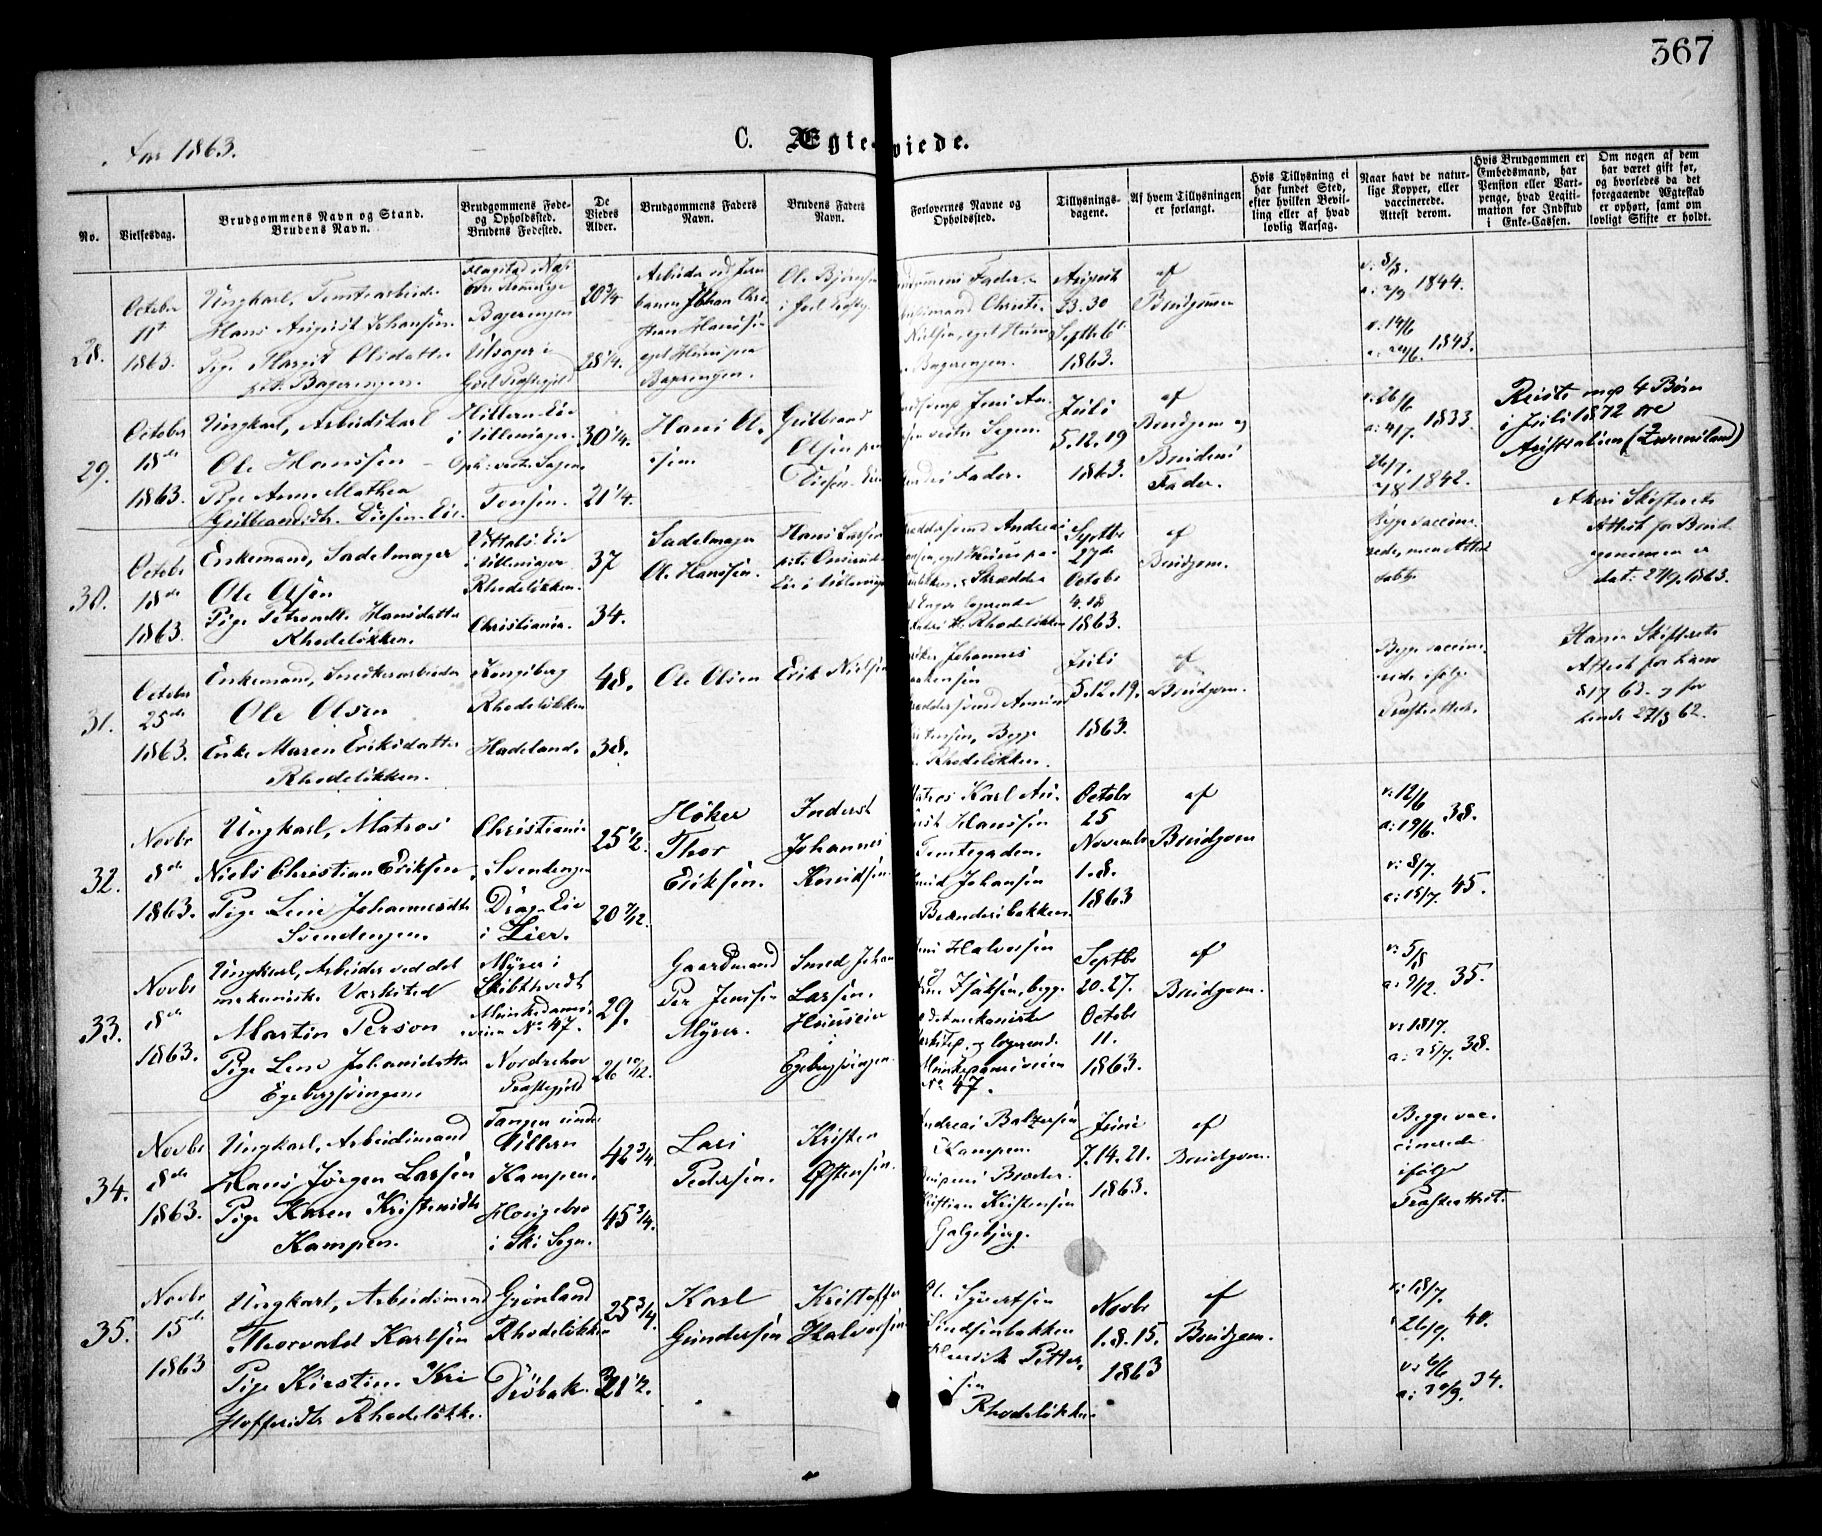 367
Aar 1863.
C. Ægteviede.
No.
Vielsesdag.
Brudgommens Navn og Stand.
Brudens Navn.
Brudgommens Føde-
og Opholdssted.
Brudens Fødested.
De
Viedes
Alder.
Brudgommens Faders
Navn.
Brudens Faders
Navn.
Forlovernes Navne og
Opholdssted.
Tillysnings-
dagene.
Af hvem Tillysningen
er forlangt.
Hvis Tillysning ei
har fundet Sted,
efter hvilken Bevil-
ling eller af hvad
lovlig Aarsag.
Naar havt de natur-
lige Kopper, eller
vaccinerede.
Attest derom.
Hvis Brudgommen er
Embedsmand, har
Pension eller Vart-
penge, hvad Legiti-
mation for Indskud
i Enke-Cassen.
Om nogen af dem
har været gift før,
og hvorledes da det
foregaaende Ægteskab
er ophørt, samt om
lovligt Skifte er holdt.
28.
October
11te
1863.
Ungkarl, Tomtearbeider
Hans August Johansen
Pige Margit Olsdatter
Bagerengen.
Bagerengen
i
Goel Præstegjeld
20 3/4
28 1/4.
Arbeider ved Jern
banen Johan Chri
stian Hanssen
eget Huus paa
Bagerengen.
Ole Bjørnsen
i Goel Præstgj.
Fader
Christi
Nielsen, eget Huus
Bagerengen.
August
23. 30
Septbr 6te
1863.
af
Brudgommen
v: 8/8.
a: 2/9 1844.
v: 14/6
a: 20/6. 1843.
29.
October
18de
1863.
Ungkarl, Arbeidskarl
Ole Hanssen
Pige Anne Mathea
Gulbrandsdtr. Diesen-Eie.
Hittern-Eie
i Ullensager
Oph: vestre Sogn
Tensen.
30 1/4.
21 1/4.
Hans O.
Gulbrand
Olsen paa
Diesen-Eie
Jens An
vestre Sogn
Fader.
Juli
5. 12. 19
1863.
af
Brudgom og
Brudens
Fader.
v: 26/6
a: 4/7. 1833.
26/7.
7/8 1842.
Reiste med 4 Børn
i Juli 1872 til
Australien (Queensland)
30.
Octobr
18de
1863.
Enkemand, Sadelmager
Ole Olsen
Pige Petronelle Hansdatter
Rhodeløkken.
i Ullensager
Rhodeløkken.
Christiania.
37
34.
Sadelmager
Ole Hanssen.
Hans Larsen
Eie i Ullensager
Andreas
eget Huus paa
Skrædder
Enger logerende
Rhodeløkken
Septbr
27de
Octobr
4. 18
1863.
af
Brudgom.
Begge vaccine
rede, men Attest
Akers Skifterets
Attest for Brud
gommen er
dat: 27/9. 1863.
31.
October
25de
1863.
Enkemand, Snedkerarbeider
Ole Olsen
Enke Maren Eriksdatter
Rhodeløkken.
Kongsberg
Rhodeløkken
Hadeland.
48.
38.
Ole Olsen
Erik Nielsen
Johannes
Begge
Rhodeløkken.
Juli
5. 12. 19.
1863.
af
Brudgom.
Begge vaccine
rede ifølge
Præsteattest.
Skifterets
Attest for ham
8/7 63. og for
hende 27/3 62.
32.
Novbr
8de
1863.
Ungkarl, Matros
Niels Christian Eriksen
Pige Lene Johannesdtr
Svendengen.
Christiania
Svendengen
Drag-Eie
i Lier.
25 1/2.
20 7/12.
Høker
Thor
Eriksen.
Inderst
Johannes
Knudsen
Matros Karl Au
gust Hanssen
Tomtegaden.
Johansen
Brændersbakken.
Octobr
25
Novembr
1. 8.
1863
af
Brudgom
v: 12/6
a: 19/6. 38.
v: 8/7.
a: 15/7. 45.
33.
Novbr
8de
1863.
Ungkarl, Arbeider ved det
mekaniske Værksted
Martin Person
Pige Lene Johansdatter
Egebergsvingen.
Myrer i
Skibthvedt
Munkedams
veien No. 47.
Nordrehov
Præstegjeld
29.
26 10/12.
Gaardmand
Per Jenssen
Myrer.
Smed Johan
Larsen.
Huuseier
i
Egebergsvingen.
Jens Halvorsen
og
Isaksen, begge
det mekaniske
Værksted, og logerende
Munkedamsveien
No. 47.
Septbr
20. 27.
Octobr
11.
1863.
af
Brudgom.
v: 5/8
a: 9/12. 35.
v: 18/7.
a: 25/7. 38.
34.
Novbr
8de
1863.
Ungkarl, Arbeidsmand
Hans Jørgen Larsen
Pige Karen Kristensdtr
Kampen.
Tangen under
Kampen.
i Ski Sogn.
42 3/4.
45 3/4.
Lars
Pedersen.
Kristen
Østensen.
Andreas Baltzersen
Kampen.
Brudens Broder
Kristian Kristensen
Galgebjerg.
Juni
7. 14. 21.
1863.
af
Brudgom.
Begge vac
cinerede
ifølge
Præsteattest.
35.
Novbr
15de
1863
Ungkarl, Arbeidsmand
Thorvald Karlsen
Pige Kirstine Kri
stoffersdtr Rhodeløkke.
Grønland
Rhodeløkken
Drøbak.
25 3/4.
31 1/2.
Karl
Gundersen
Kristoffer
Halvorsen
Ol. Syvertsen
Henrik Petter
sen
Rhodeløkken
Novbr
1. 8. 15.
1863
af
Brudgom.
v: 18/7.
26/7. 40.
v: 6/6
a: 30/9. 34.